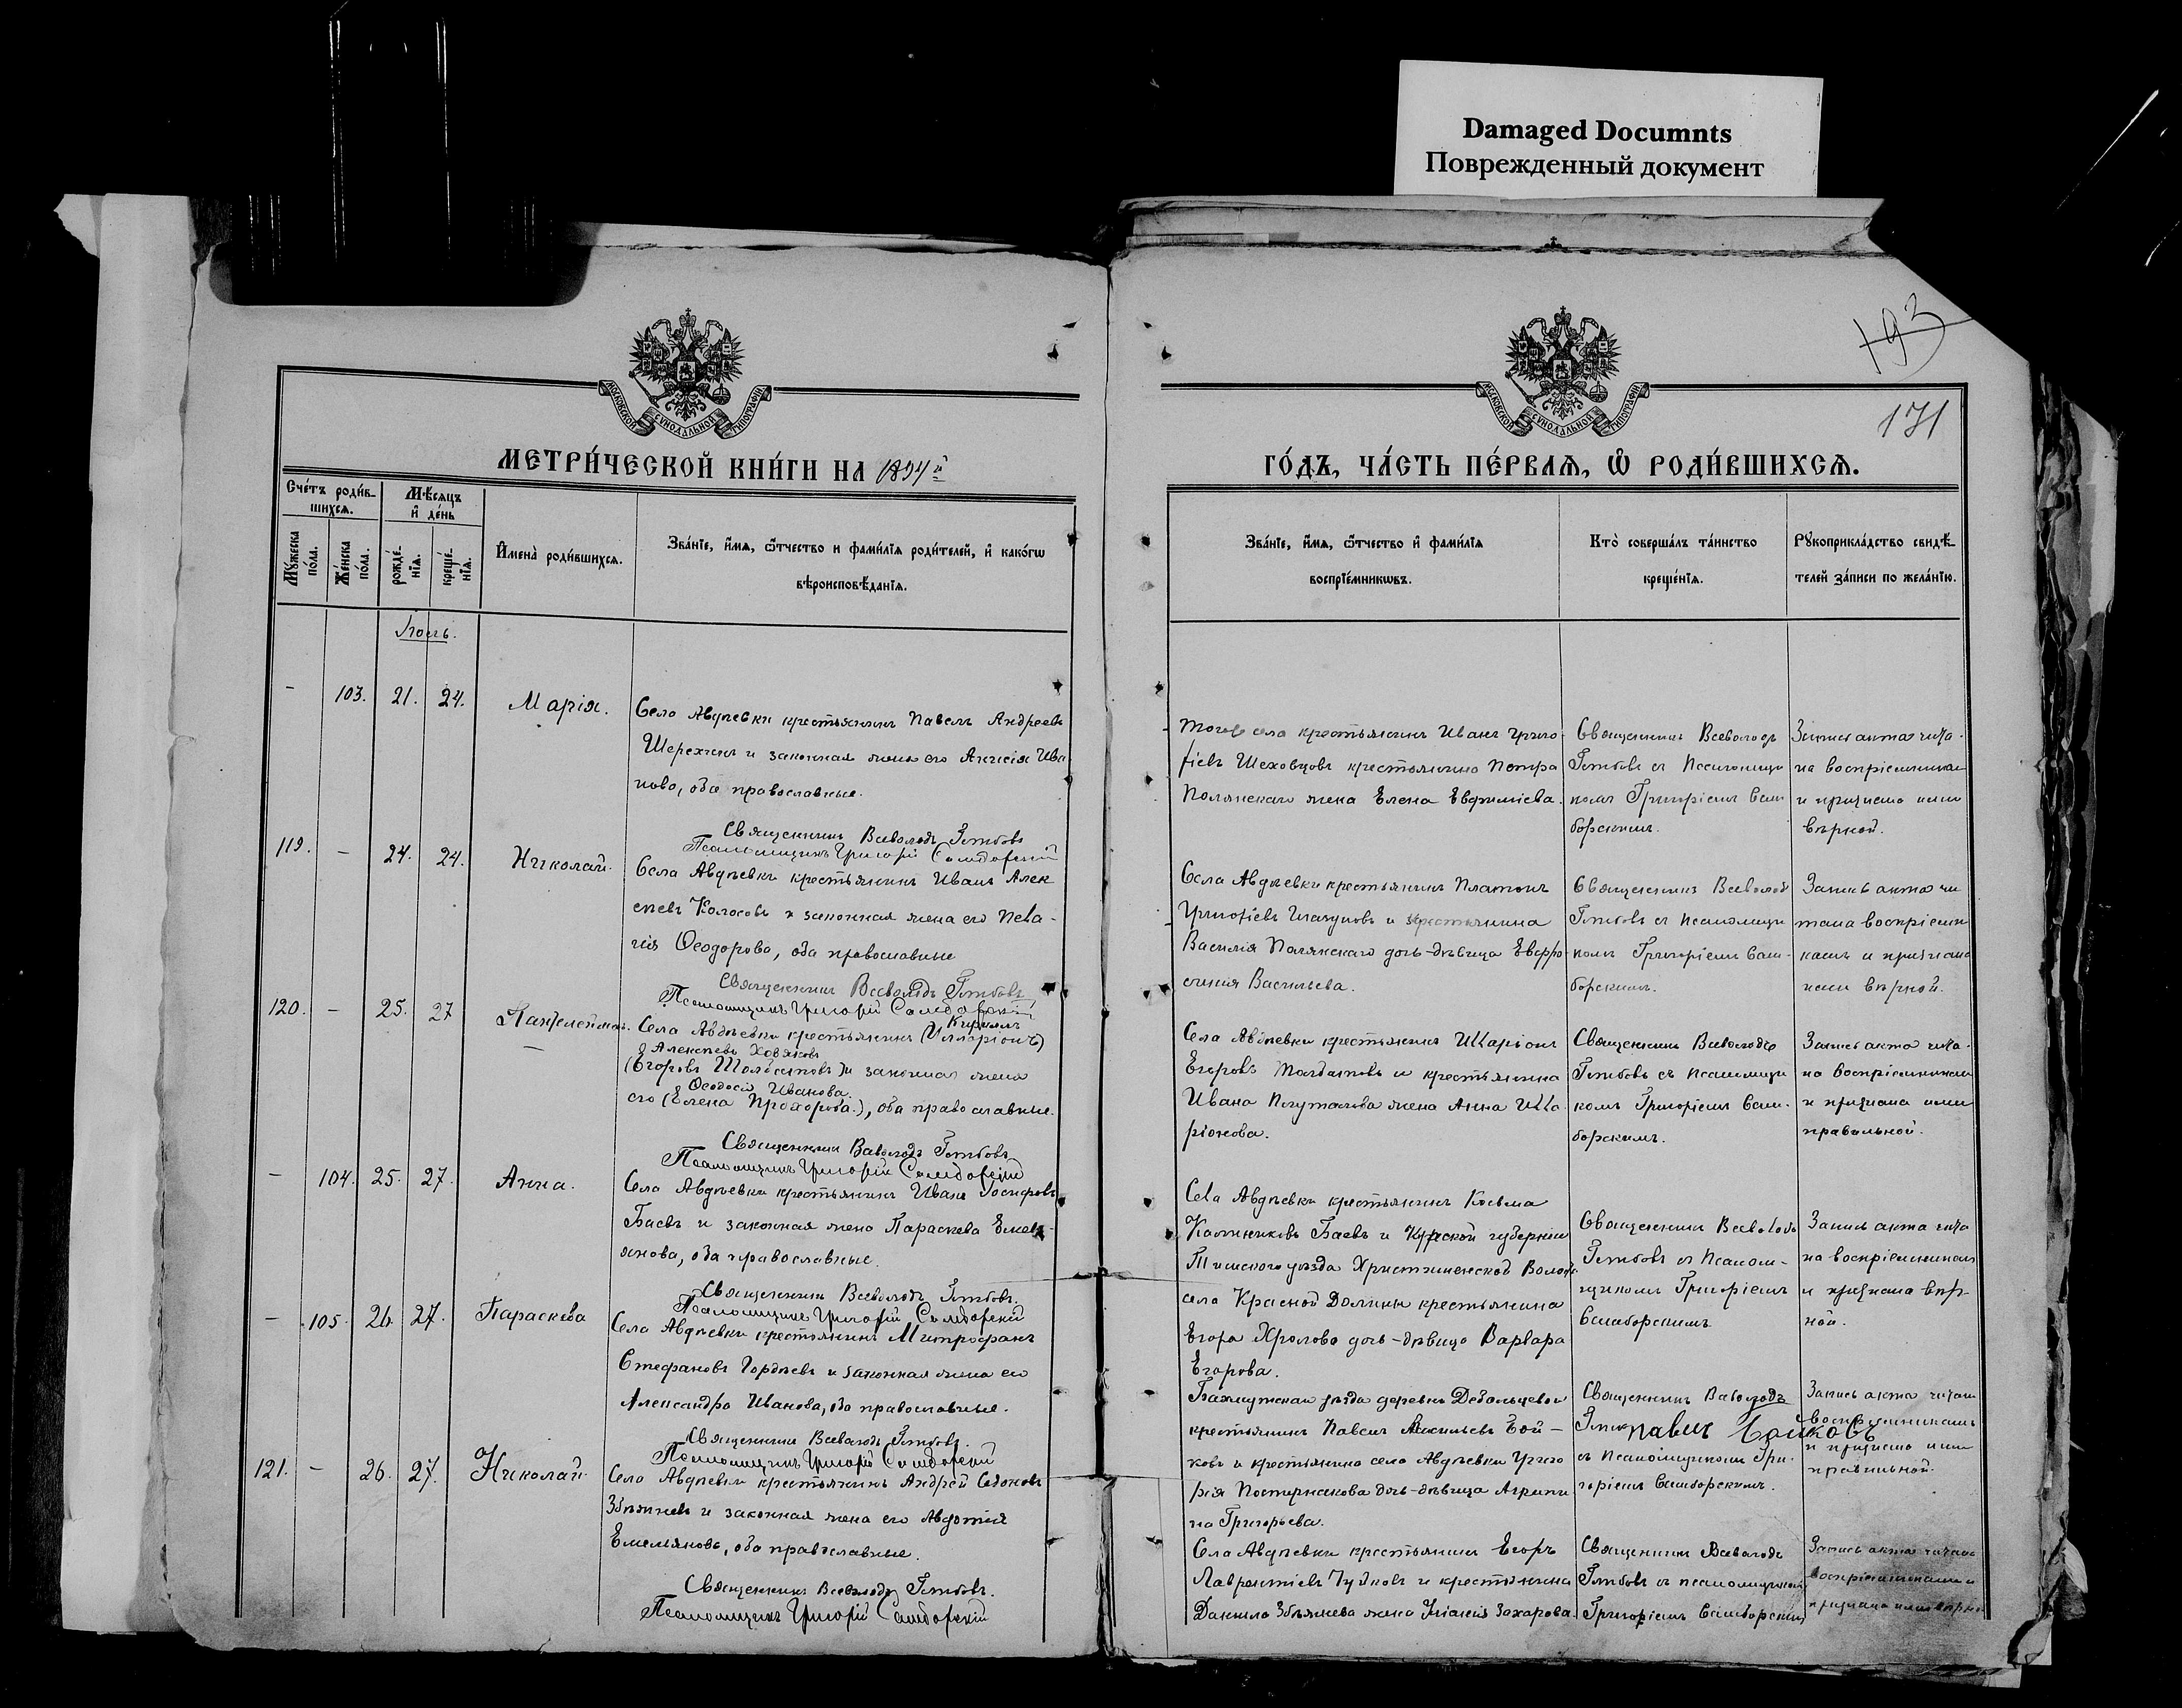 Damaged Documnts
Поврежденный документ
193
171
МОСКОВСКОЙ СѴНОДАЛЬНОЙ ТИПОГРАФІИ
МОСКОВСКОЙ СѴНОДАЛЬНОЙ ТИПОГРАФІИ
МЕТРИ́ЧЕСКОЙ КНИ́ГИ НА 1894й
ГО́ДЪ, ЧА́СТЬ ПЕ́РВАѦ, Ѡ҆ РОДИ́ВШИХСѦ.
Сче́тъ роди́в-
шихсѧ.
Мѣ́сѧцъ
и҆ де́нь
Мꙋ́жеска
по́ла.
Же́нска
по́ла.
рожде́-
нїѧ.
креще́-
нїѧ.
И҆мена̀ роди́вшихсѧ.
Зва́нїе, и҆́мѧ, ѻ҆́тчество и фами́лїѧ роди́телей, и҆ како́гѡ
вѣроисповѣ́данїѧ.
Зва́нїе, и҆́мѧ, ѻ҆́тчество и҆ фами́лїѧ
воспрїе́мникѡвъ.
Кто̀ соверша́лъ та́инство
креще́нїѧ.
Рꙋкоприкла́дство свидѣ́-
телей за́писи по жела́нїю.
Іюль.
- 103. 21. 24. Марія.
Села Авдѣевки крестьянинъ Павелъ Андреевъ
и законная жена его Ива
нова, оба православные.
Священникъ Всеволодъ
Псаломщикъ Григорій Самборскій
Тогоже села крестьянинъ Иванъ Григо-
рьевъ Шеховцовъ крестьянина Петра
Полянскаго жена Елена Евфиміева.
Священникъ Всеволодъ
съ Псаломщи
комъ Григоріемъ Сам
борскимъ.
Запись акта чита-
на воспріемникам
и признана ими
вѣрной.
119. - 24. 24. Николай.
Села Авдѣевки крестьянинъ Иванъ Алек
сѣевъ Колосовъ и законная жена его Пела-
гія Ѳеодорова, оба православные
Священникъ Всеволодъ
Псаломщикъ Григорій Самборскій
Села Авдѣевки крестьянинъ Платонъ
Григорьевъ и крестьянина
Василія Полянскаго дочь-дѣвица Евфро
синія Васильева.
Священникъ Всеволод
съ Псаломщи
комъ Григоріемъ Сам-
борскимъ.
Запись акта чи
тана воспріемни
камъ и признана
ими вѣрной.
120. - 25. 27 Пантелеймонъ.
Кириллъ
Села Авдѣевки крестьянинъ (Илларіонъ)
Алексѣевъ
(Егоровъ и законная жена
Ѳеодосія Иванова.
его (Елена Прохорова.), оба православные.
Священникъ Всеволодъ
Псаломщикъ Григорій Самборскій
Села Авдѣевки крестьянинъ Иларіонъ
Егоровъ и крестьянина
Ивана жена Анна Илла
ріонова.
Священникъ Всеволодъ
съ псаломщи
комъ Григоріемъ Сам-
борскимъ.
Запись акта чита-
на воспріемникам
и признана ими
правильной.
- 104. 25. 27. Анна.
Села Авдѣевки крестьянинъ Иванъ Іосифовъ
Баевъ и законная жена Параскева Емель-
янова, оба православные.
Священникъ Всеволодъ
Псаломщикъ Григорій Самборскій
Села Авдѣевки крестьянинъ Косьма
Баевъ и Курской губерніи
Тимскаго уѣзда
села Красной Долины крестьянина
Егора Фролова дочь-дѣвица Варвара
Егорова.
Священникъ Всеволодъ
съ Псалом-
щикомъ Григоріемъ
Самборскимъ
Запись акта чита
на воспріемникам
и признана вѣр-
ной.
- 105. 26. 27. Параскева
Села Авдѣевки крестьянинъ Митрофанъ
Стефановъ Гордѣевъ и законная жена его
Александра Иванова, оба православные.
Священникъ Всеволодъ
Псаломщикъ Григорій Самборскій
Бахмутскаго уѣзда деревни Дебальцевой
крестьянинъ Павелъ Бой-
ковъ и крестьянина села Авдѣевки Григо
рія Постернакова дочь-дѣвица Агрипи
на Григорьева.
Священникъ Всеволодъ
Павелъ Бойковъ
съ Псаломщикомъ Гри-
горіемъ Самборскимъ.
Запись акта читана
воспріемникамъ
и признана ими
правильной.
121. - 26. 27. Николай.
Села Авдѣевки крестьянинъ Андрей
и законная жена его Авдотія
Емельянова, оба православные.
Священникъ Всеволодъ
Псаломщикъ Григорій Самборскій
Села Авдѣевки крестьянинъ Егоръ
Лаврентіевъ и крестьянина
Даніила жена Захарова.
Священникъ Всеволодъ
съ псаломщикомъ
Григоріемъ Самборскимъ
Запись акта читана
воспріемниками и
признана ими вѣрной